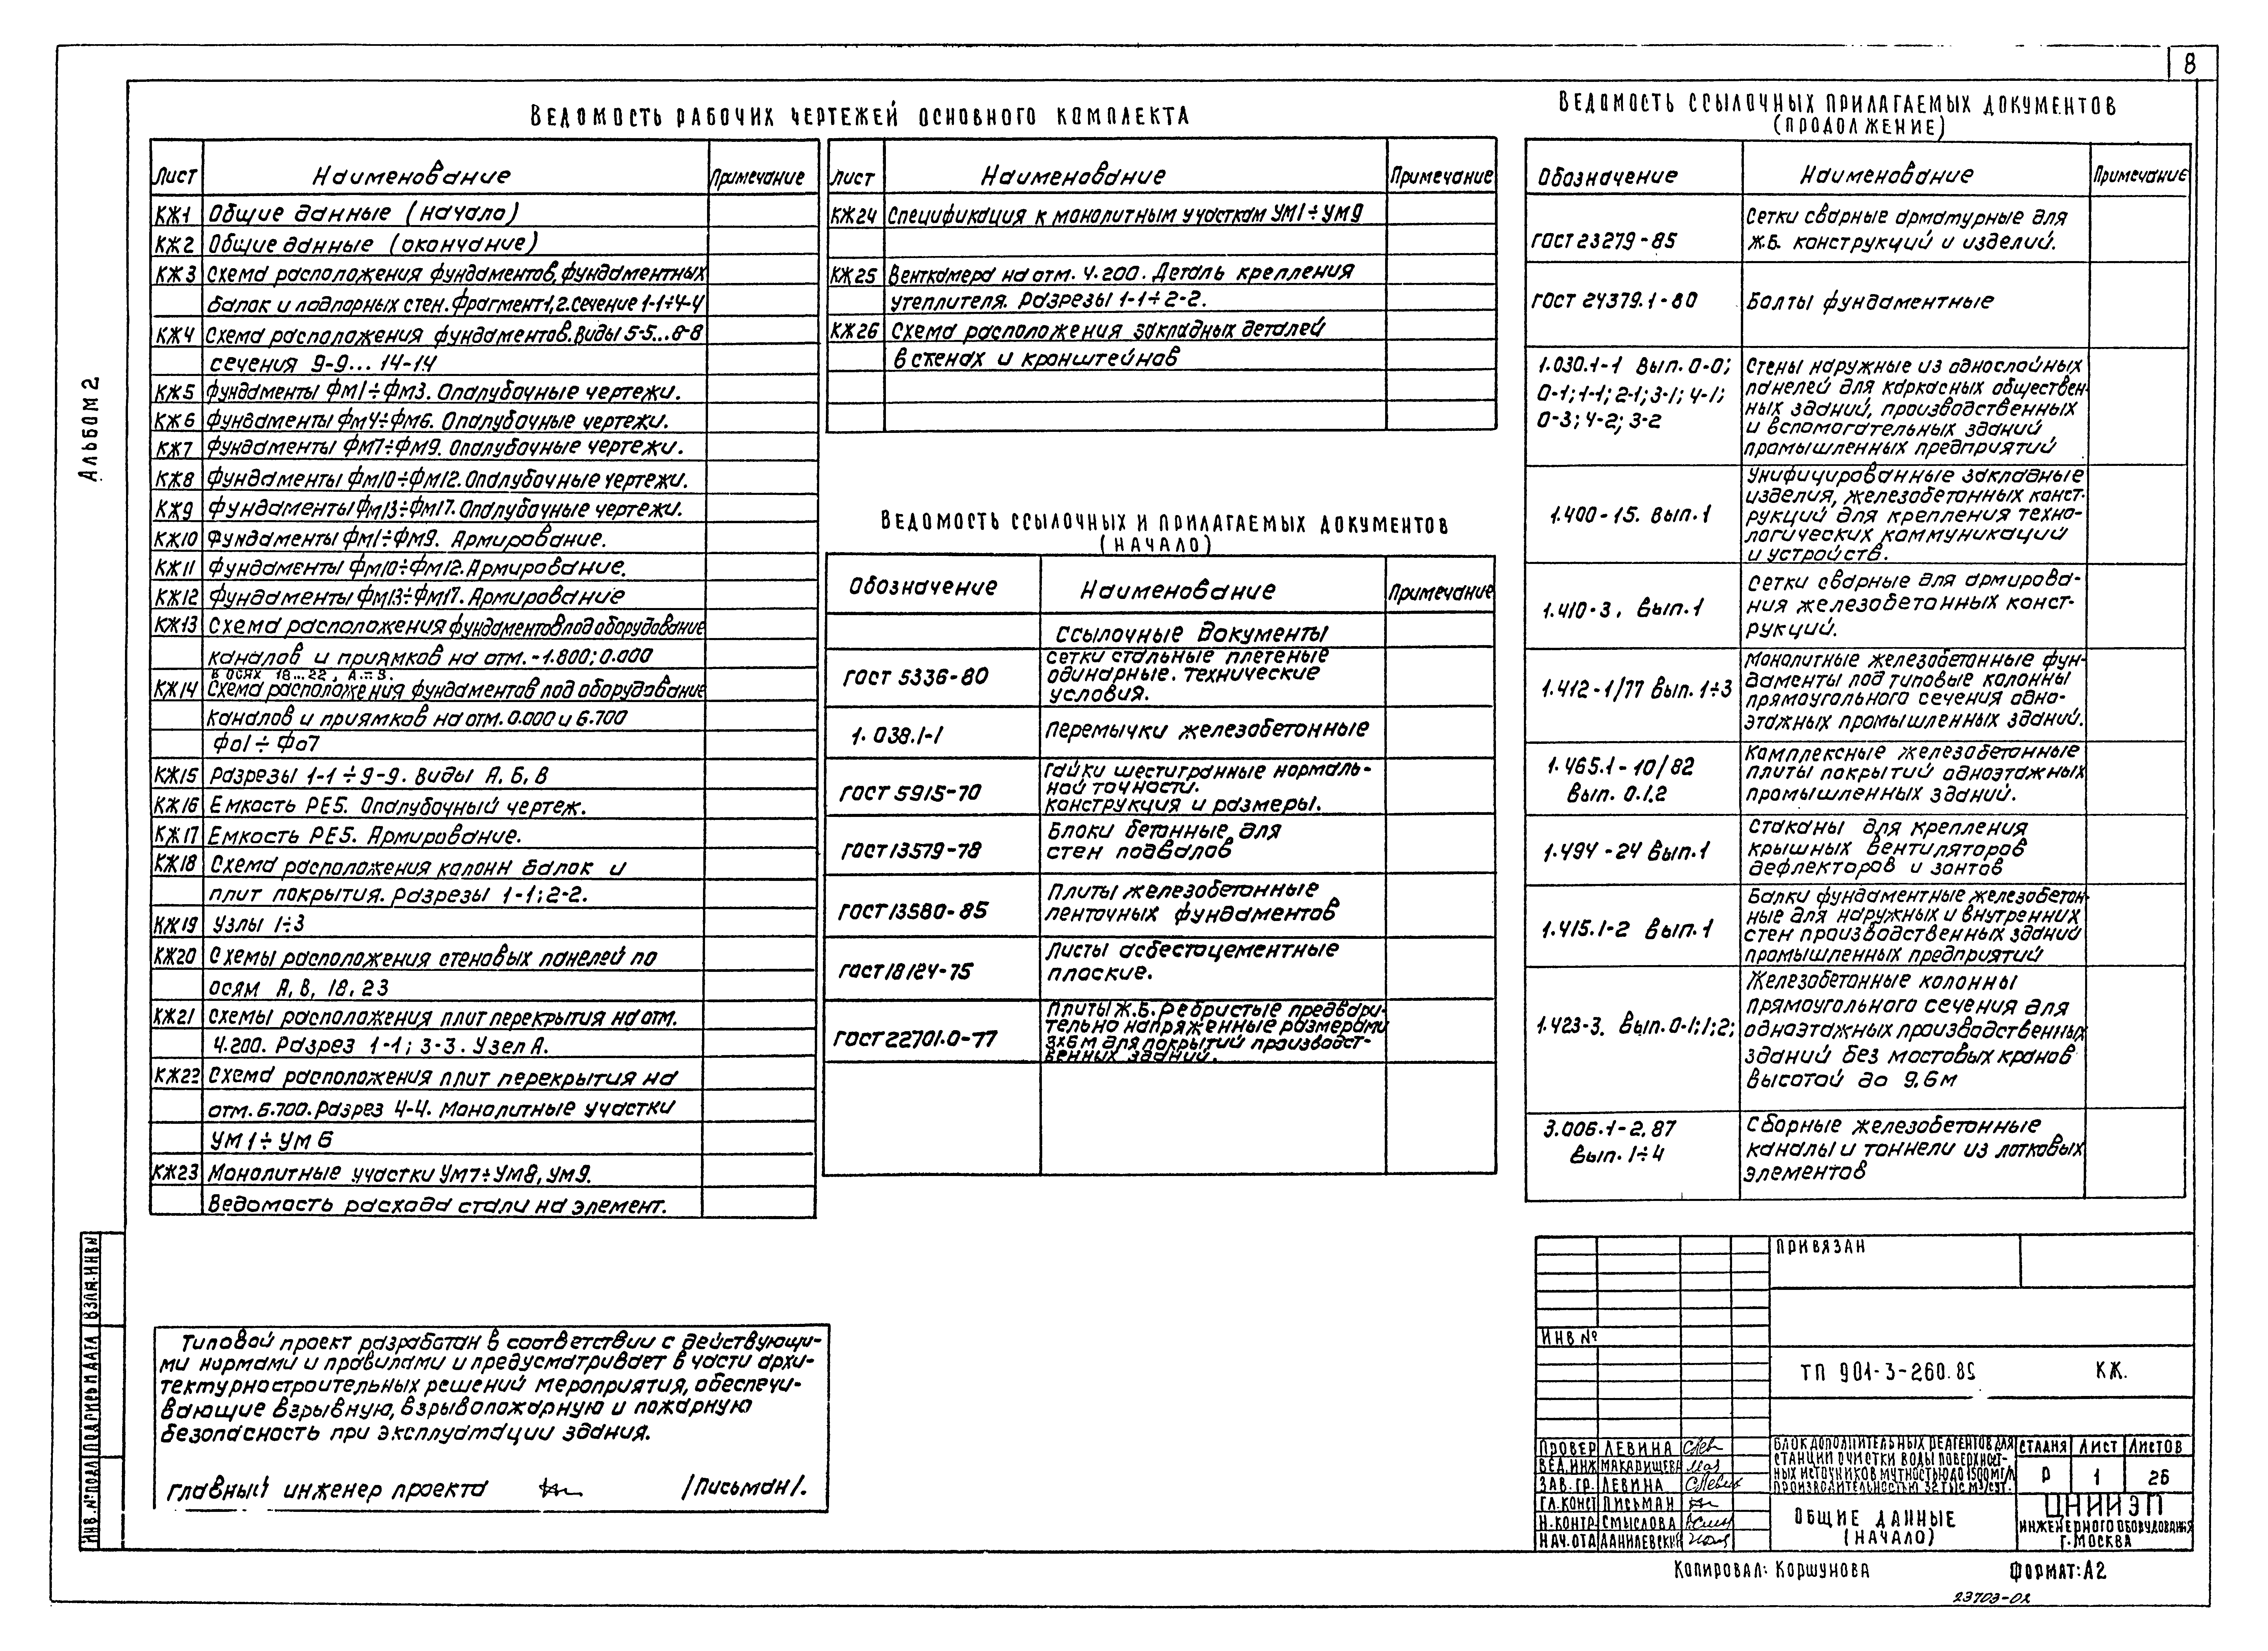 8
Альбом 2
Ведомость рабочих чертежей основного комплекта
Лист Наименование Примечание
КЖ1 Общие данные (начало)
КЖ2 Общие данные (окончание)
КЖ3 Схема расположения фундаментов, фундаментных
балок и подпорных стен. Фрагмент 1,2. Сечение 1-1÷4-4
КЖ4 Схема расположения фундаментов. Виды 5-5...8-8
сечения 9-9... 14-14
КЖ5 Фундаменты Фм1÷Фм3. Опалубочные чертежи.
КЖ6 Фундаменты Фм4÷Фм6. Опалубочные чертежи.
КЖ7 Фундаменты Фм7÷Фм9. Опалубочные чертежи.
КЖ8 Фундаменты Фм10÷Фм12. Опалубочные чертежи.
КЖ9 Фундаменты Фм13÷Фм17. Опалубочные чертежи.
КЖ10 Фундаменты Фм1÷Фм9. Армирование.
КЖ11 Фундаменты Фм10÷Фм12. Армирование.
КЖ12 Фундаменты Фм13÷Фм17. Армирование
КЖ13 Схема расположения фундаментов под оборудование
каналов и приямков на отм. -1.800; 0.000
в осях 18...22, А...
КЖ14 Схема расположения фундаментов под оборудование
каналов и приямков на отм. 0.000 и 6.700
Фо1÷Фо7
КЖ15 Разрезы 1-1÷9-9. Виды А, Б, В
КЖ16 Емкость РЕ5. Опалубочный чертеж.
КЖ17 Емкость РЕ5. Армирование.
КЖ18 Схема расположения колонн балок и
плит покрытия. Разрезы 1-1; 2-2.
КЖ19 Узлы 1÷3
КЖ20 Схемы расположения стеновых панелей по
осям А, В, 18, 23
КЖ21 Схемы расположения плит перекрытия на отм.
4.200. Разрез 1-1; 3-3. Узел А.
КЖ22 Схема расположения плит перекрытия на
отм. 6.700. Разрез 4-4. Монолитные участки
Ум1÷Ум6
КЖ23 Монолитные участки Ум7÷Ум8, Ум9.
Ведомость расхода стали на элемент.
Лист Наименование Примечание
КЖ24 Спецификация к монолитным участкам Ум1÷Ум9
КЖ25 Венткамера на отм. 4.200. Деталь крепления
утеплителя. Разрезы 1-1÷2-2.
КЖ26 Схема расположения закладных деталей
в стенах и кронштейнов
Ведомость ссылочных и прилагаемых документов
(начало)
Обозначение Наименование Примечание
Ссылочные документы
Сетки стальные плетеные
ГОСТ 5336-80 одинарные. Технические
условия.
1.038.1-1 Перемычки железобетонные
Гайки шестигранные нормаль-
ГОСТ 5915-70 ной точности.
Конструкция и размеры.
ГОСТ 13579-78 Блоки бетонные для
стен подвалов
ГОСТ 13580-85 Плиты железобетонные
ленточных фундаментов
ГОСТ 18124-75 Листы асбестоцементные
плоские.
Плиты Ж.Б. Ребристые предвари-
ГОСТ 22701.0-77 тельно напряженные размерами
3х6 м для покрытий производст-
венных зданий.
Ведомость ссылочных прилагаемых документов
(продолжение)
Обозначение Наименование Примечание
ГОСТ 23279-85 Сетки сварные арматурные для
ж.б. конструкций и изделий.
ГОСТ 24379.1-80 Болты фундаментные
1.030.1-1 Вып. 0-0; Стены наружные из однослойных
0-1; 1-1; 2-1; 3-1; 4-1; панелей для каркасных обществен-
0-3; 4-2; 3-2 ных зданий, производственных
и вспомогательных зданий
промышленных предприятий
Унифицированные закладные
изделия, железобетонных конст-
1.400-15. Вып.1 рукций для крепления техно-
логических коммуникаций
и устройств.
Сетки сварные для армирова-
1.410-3. Вып.1 ния железобетонных конст-
рукций.
Монолитные железобетонные фун-
1.412-1/77 Вып. 1÷3 даменты под типовые колонны
прямоугольного сечения одно-
этажных промышленных зданий.
1.465.1-10/82 Комплексные железобетонные
Вып. 0.1.2 плиты покрытий одноэтажных
промышленных зданий.
Стаканы для крепления
1.494-24 Вып.1 крышных вентиляторов
дефлекторов и зонтов
Балки фундаментные железобетон-
1.415.1-2 Вып.1 ные для наружных и внутренних
стен производственных зданий
промышленных предприятий
Железобетонные колонны
прямоугольного сечения для
1.423-3. Вып. 0-1; 1; 2; одноэтажных производственных
зданий без мостовых кранов
высотой до 9,6м
3.006.1-2.87 Сборные железобетонные
Вып. 1÷4 каналы и тоннели из лотковых
элементов
Типовой проект разработан в соответствии с действующи-
ми нормами и правилами и предусматривает в части архи-
тектурностроительных решений мероприятия, обеспечи-
вающие взрывную, взрывопожарную и пожарную
безопасность при эксплуатации здания.
Главный инженер проекта /Письман/.
Взам. инв №
Подпись и дата
Инв. № подл
Привязан
Инв №
ТП 901-3-260.89 КЖ.
Провер Левина
Вед. инж Макаришева
Зав. гр. Левина
Гл. конст Письман
Н. контр. Смыслова
Нач. отд Данилевский
Блок дополнительных реагентов для
станции очистки воды поверхност-
ных источников мутностью до 1500 мг/л
производительностью 32 тыс м³/сут.
Стадия Лист Листов
Р 1 26
Общие данные
(начало)
ЦНИИЭП
инженерного оборудования
г. Москва
Копировал: Коршунова Формат: А2
23703-02